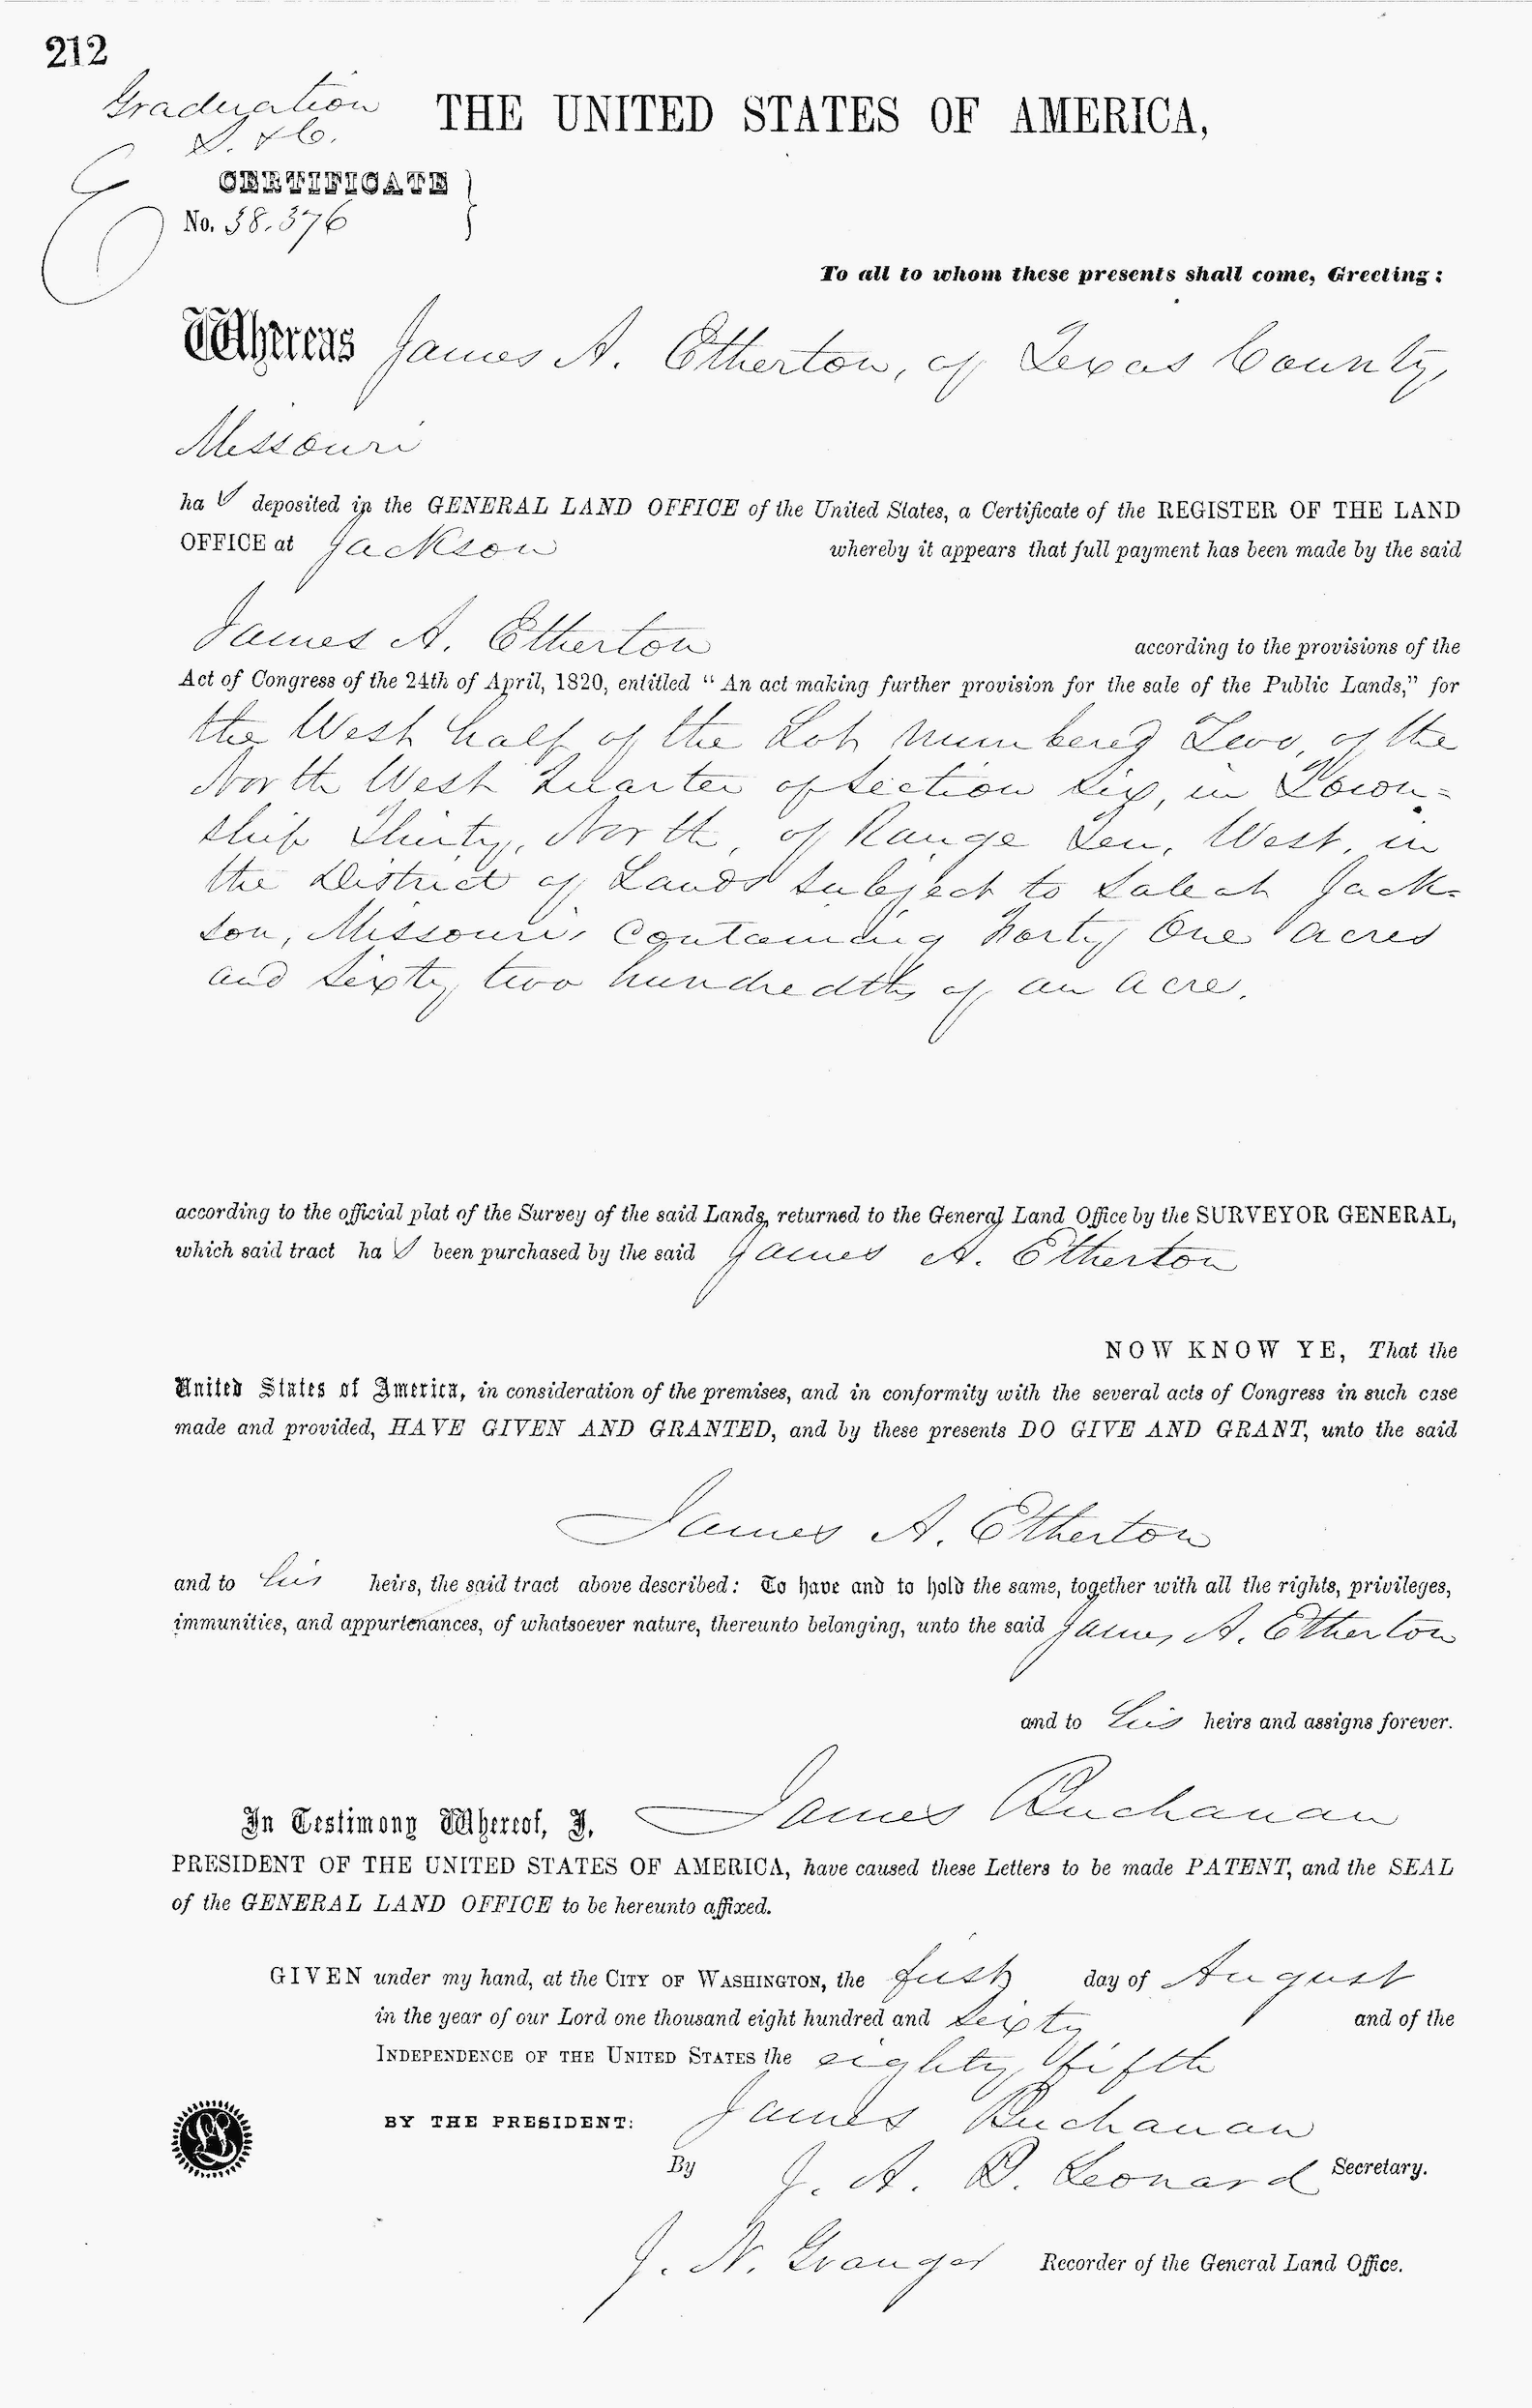 212
Graduation
S. & C.
THE UNITED STATES OF AMERICA,
CERTIFICATE
No. 38.376
To all to whom these presents shall come, Greeting:
Whereas James A. Etherton, of Texas County,
Missouri
ha s deposited in the GENERAL LAND OFFICE of the United States, a Certificate of the REGISTER OF THE LAND
OFFICE at Jackson whereby it appears that full payment has been made by the said
James A. Etherton according to the provisions of the
Act of Congress of the 24th of April, 1820, entitled “An act making further provision for the sale of the Public Lands,” for
the West half of the Lot numbered Two, of the
North West Quarter of Section Six, in Town=
ship Thirty, North, of Range Ten, West, in
the District of Lands subject to Sale at Jack=
son, Missouri, Containing Forty One acres
and Sixty two hundredths of an acre.
according to the official plat of the Survey of the said Lands, returned to the General Land Office by the SURVEYOR GENERAL,
which said tract ha s been purchased by the said James A. Etherton
NOW KNOW YE, That the
United States of America, in consideration of the premises, and in conformity with the several acts of Congress in such case
made and provided, HAVE GIVEN AND GRANTED, and by these presents DO GIVE AND GRANT, unto the said
James A. Etherton
and to his heirs, the said tract above described: To have and to hold the same, together with all the rights, privileges,
immunities, and appurtenances, of whatsoever nature, thereunto belonging, unto the said James A. Etherton
and to his heirs and assigns forever.
In Testimony Whereof, I, James Buchanan
PRESIDENT OF THE UNITED STATES OF AMERICA, have caused these Letters to be made PATENT, and the SEAL
of the GENERAL LAND OFFICE to be hereunto affixed.
GIVEN under my hand, at the CITY OF WASHINGTON, the first day of August
in the year of our Lord one thousand eight hundred and Sixty and of the
INDEPENDENCE OF THE UNITED STATES the eighty fifth
BY THE PRESIDENT: James Buchanan
By J. A. B. Leonard Secretary.
J. N. Granger Recorder of the General Land Office.